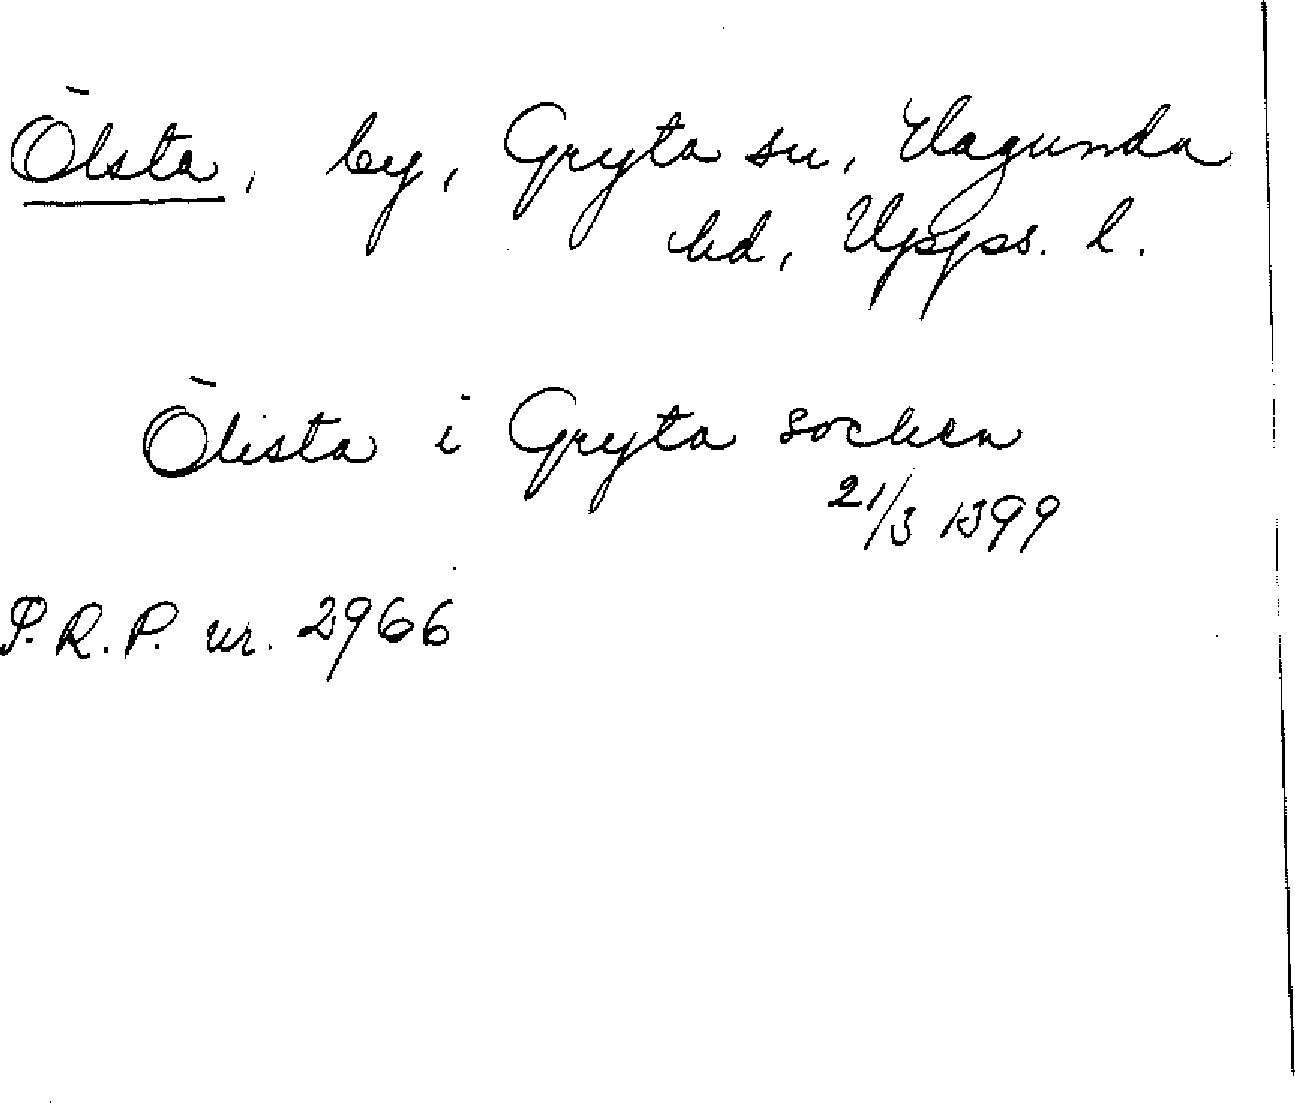 Ölsta, by, Gryta sn, Hagunda
hd, Upps. l.
Ölista i Gryta socken
21/3 1399
S.R.P. nr. 2966